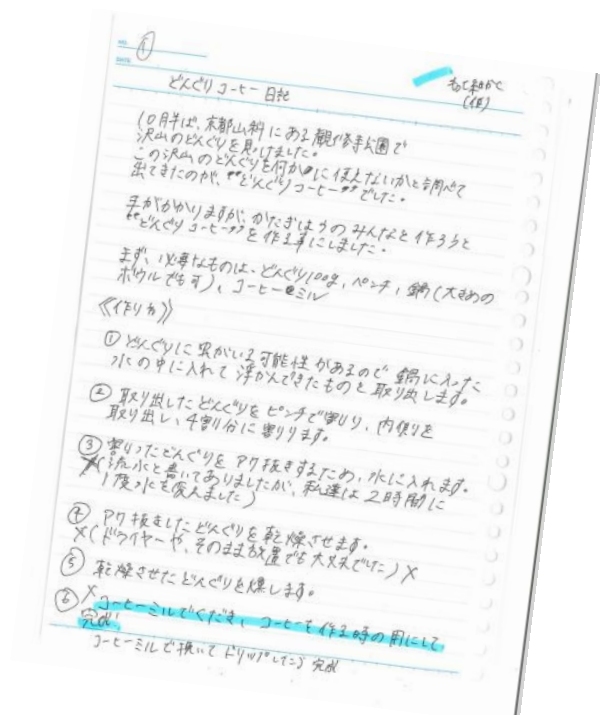 ①
どんぐりコーヒー日記
もって細かく
(仮)
10月半ば、京都山科にある観修寺公園で
沢山のどんぐりを見つけました。
この沢山のどんぐりを何かに使えないかと調べて
出てきたのが、"どんぐりコーヒー"でした。
手がかかりますが、かたぎはらのみんなと作ろうと
"どんぐりコーヒー"を作る事にしました。
まず、必要なものは、どんぐり100g、ペンチ、鍋(大きめの
ボウルでも可)、コーヒーミル
《作り方》
① どんぐりに虫がいる可能性があるので鍋に入った
水の中に入れて浮かんできたものを取り出します。
② 取り出したどんぐりをピンチで割り、内側を
取り出し、4割り分に割ります。
③ 割ったどんぐりをアク抜きするため、水に入れます。
(流水と書いてありましたが、私達は2時間に
1度水を変えました)
④ アク抜きしたどんぐりを乾燥させます。
×(ドライヤーや、そのまま放置でも大丈夫でした)×
⑤ 乾燥させたどんぐりを煤します。
⑥ ×コーヒーミルでくだき、コーヒーを作る時の用にして
完成
コーヒーミルで挽いてドリップしたら完成